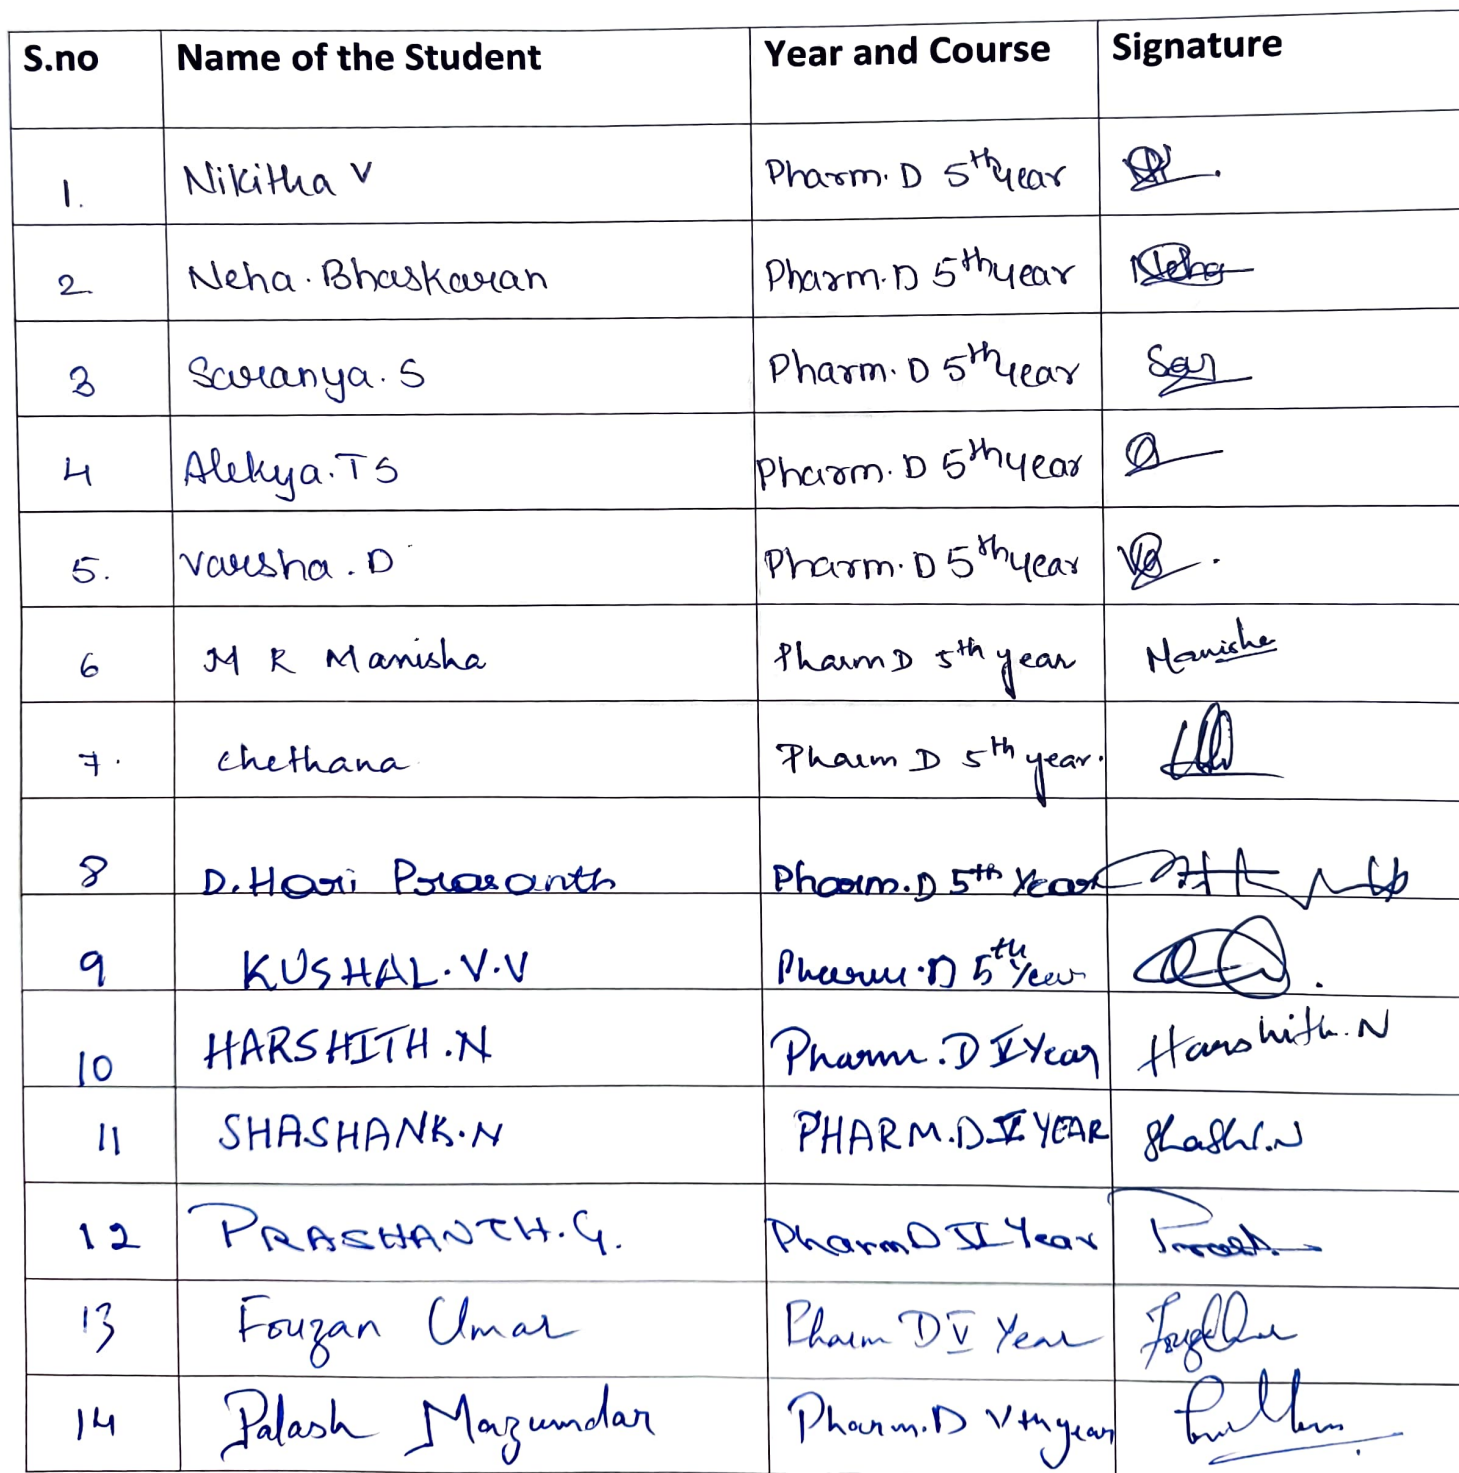 S.no Name of the Student Year and Course Signature
1. Nikitha V Pharm. D 5th year
2 Neha. Bhaskaran Pharm. D 5th year Neha
3 Saranya. S Pharm. D 5th year Sar
4 Alekya. T S Pharm. D 5th year
5. Varsha. D Pharm. D 5th year
6 M R Manisha Pharm D 5th year Manisha
7. Chethana Pharm D 5th year.
8 D. Hari Prasanth Pharm. D 5th Year
9 KUSHAL. V. V Pharm. D 5th Year
10 HARSHITH. N Pharm. D V Year Harshith. N
11 SHASHANK. N PHARM. D V YEAR Shashi. N
12 PRASHANTH. G. Pharm D Year
13 Fouzan Umar Pharm D V Year
14 Palash Mazumdar Pharm. D Vth year